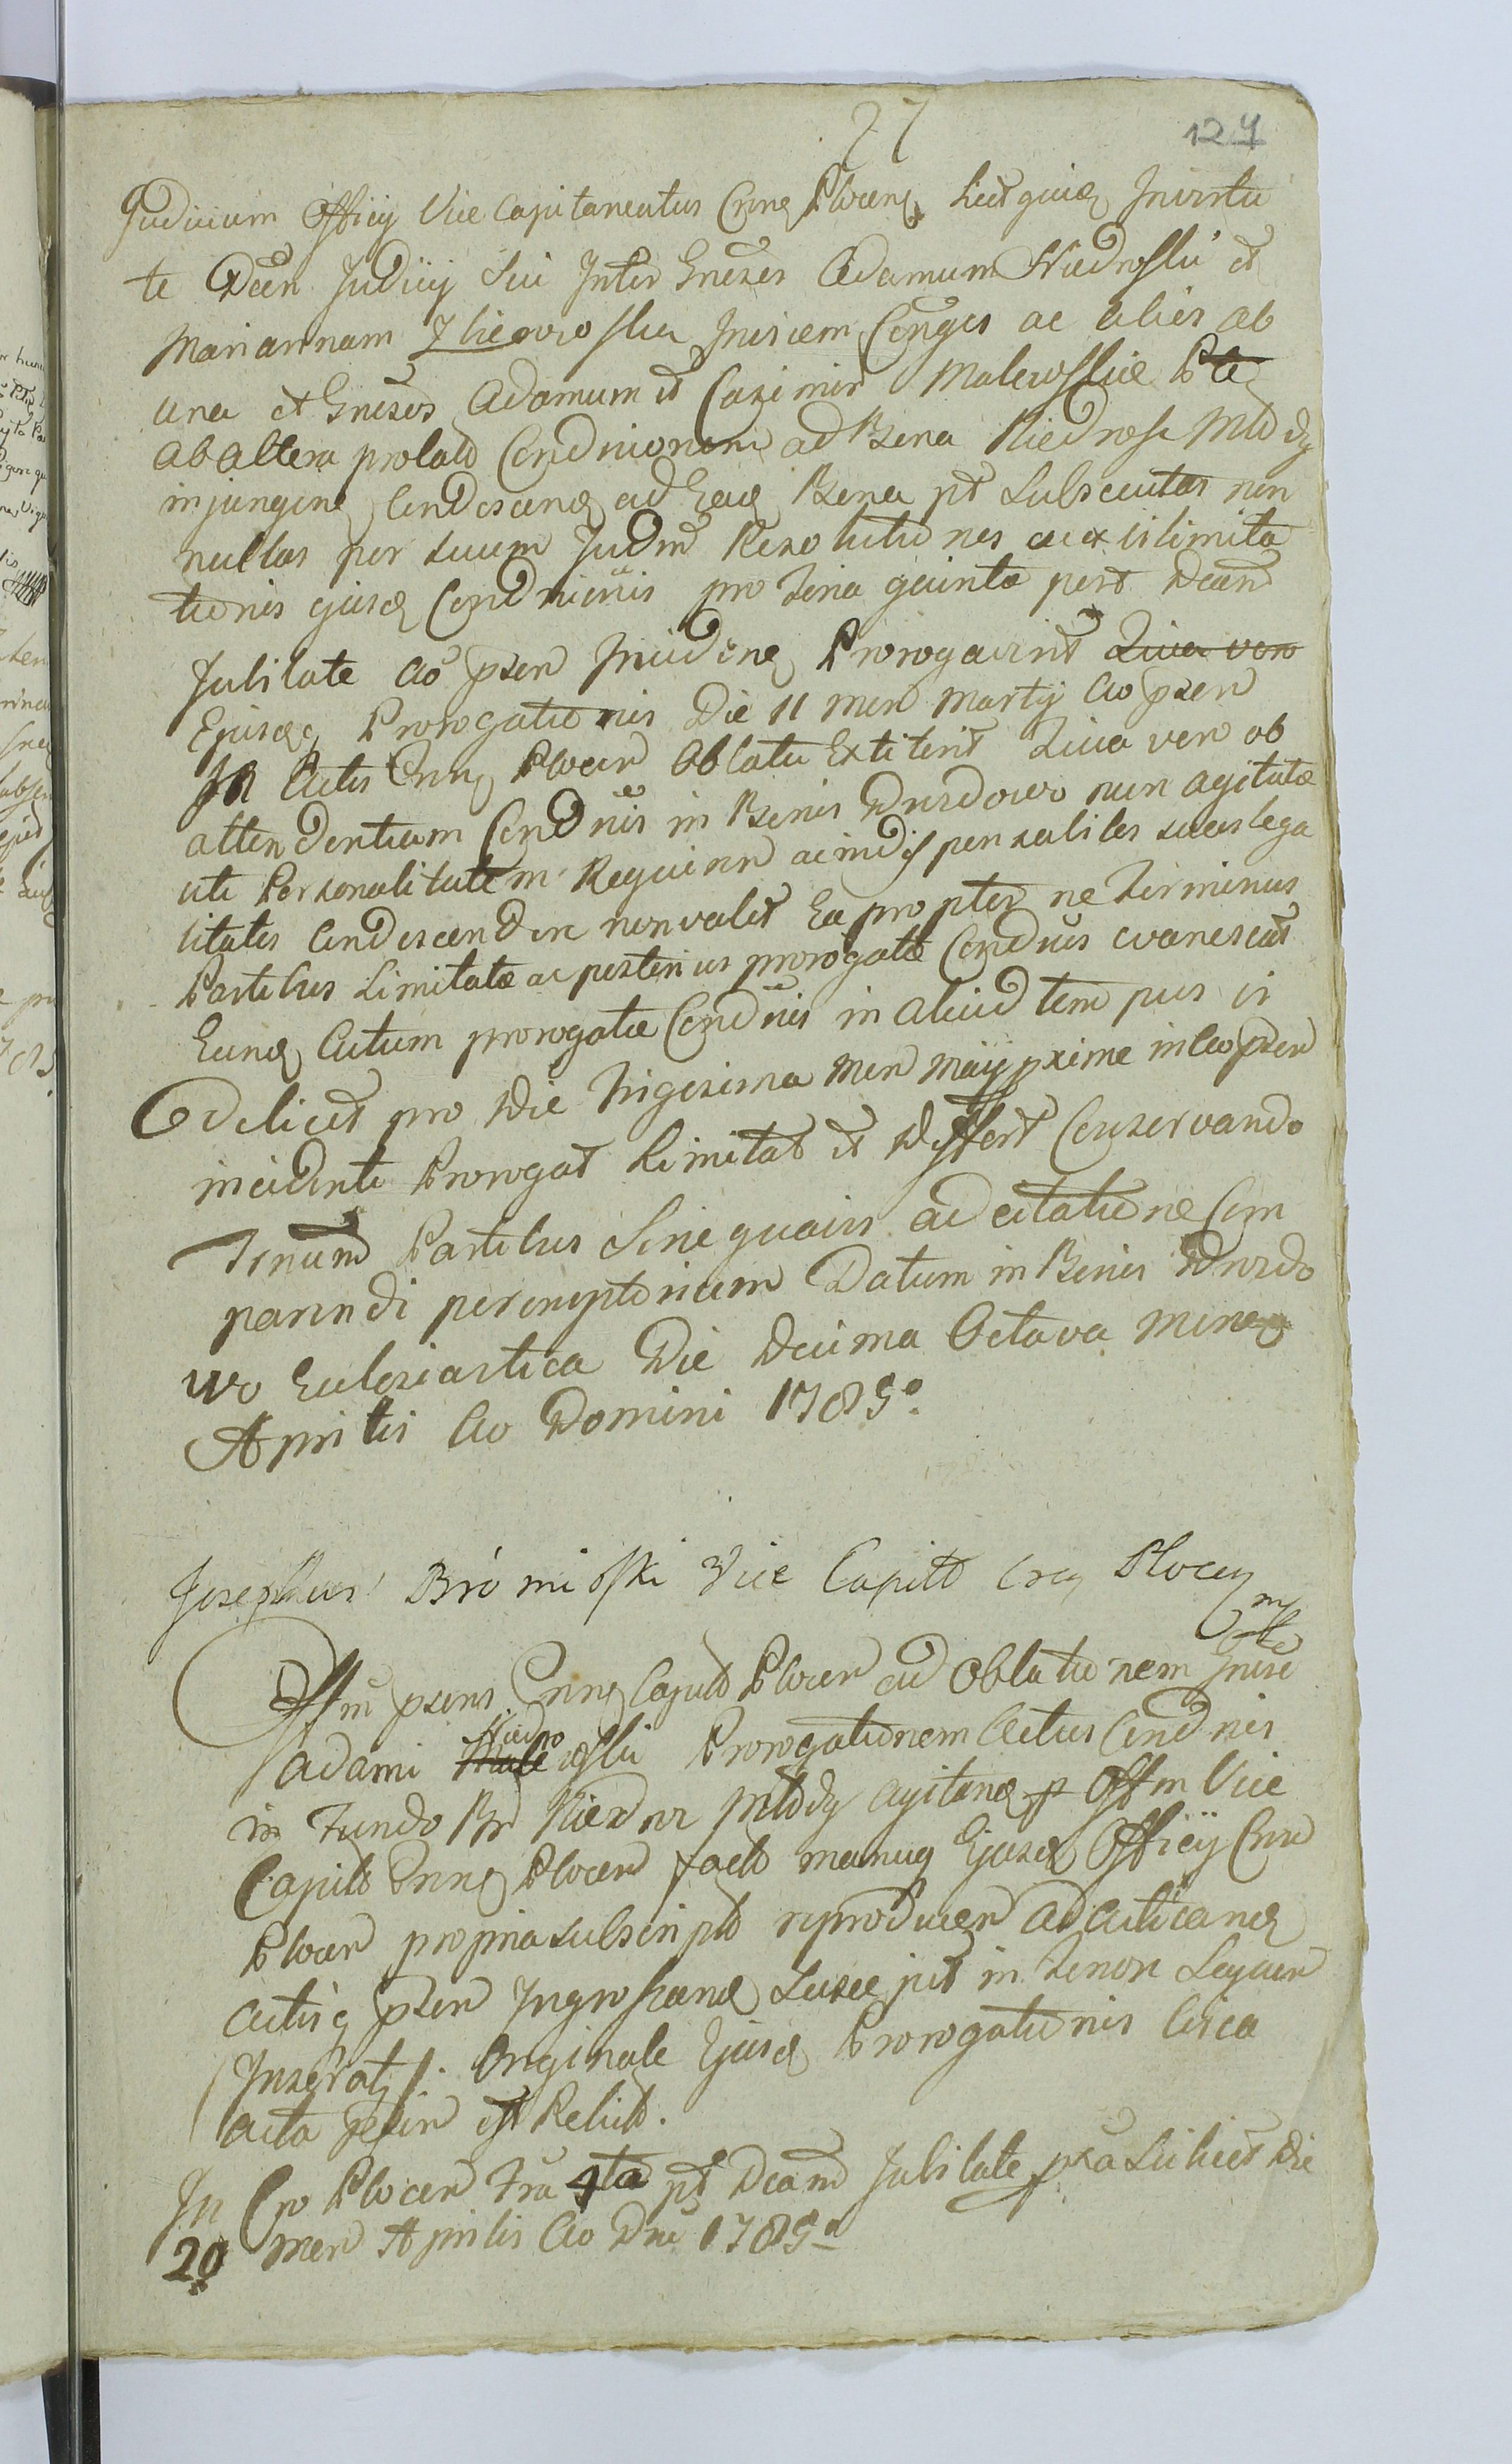 27
127
Judicium Officy Vice Capitaneatus Crnṇ Plocenṣ licet quidē Invirtu
te Decr̄ Judicy Sui Inter Gnesos Adamum Niedroski et
Mariannam Zbierzoska Invicem Conges ac alies ab
una et Gnesos Adamum et Casimir Malewskie Ptē
ab altera prolato Conduionem ad Bona Niedroż Młody
injungen Condescenḍ ad Eadē Bona pt Subsecutas non
nullas per suum Judm̄ Resolutiones ac ex vi limita
tionis ejusdē Condnionis pro Feria quinta post Dcam̄
Jubilate Ao psen Incidenḍ Prorogaverit Quia vero
Ejusdq Prorogationis Die 11 Men̄ Martÿ Ao psen
In Actis Crnṇ Plocen̄ Oblata Extiterit Quia vero ob
attendentiam Condnis in Bonis Drozdowo nun agitatæ
uti Personalitatem Requiren̄ ac indispensabiles suas lega
litates Condescendere non valet Ea propter ne Terminus
Partibus Limitatæ ac posterius prorogatæ Condnis evanescat
Eunḍ Actum prorogatæ Condnis in aliud tempus vi
delicet pro Die Trigesima Men̄ Maÿ proxime in Ao psen̄
incidenti Prorogat Limitat et Differt Conservando
Trnum̄ Partibus Sine quavis adcitatione Com
parendi peremptorium Datum in Bonis Drozdo
wo Ecclesiastica Die Decima Octava Mensq
Aprilis Ao Domini 1785o
Josephus Bromirski Vice Capitt Crq Plocq
mp
Offm̄ psens Crnṇ Capitt Plocen̄ ad Oblationem Gnese
Adami Male Niedro wski Prorogationem Actus Condnis
in Fundo Bn̄ Niedroż Młody agitanḍ p Offm Vice
Capitt Crnṇ Plocen̄ fact manuq Ejusdē Officÿ Crn̄
Plocen̄ propria subscript reproducen̄ ad acticanḍ
Actisq psen̄ Ingrossanḍ Suscepit in Tenore Sequen
Inserat /. Originale Ejusdē Prorogationis Circa
Acta psen̄ est Relict.
In Cro Plocen̄ Fria 4ta pt Dcam̄ Jubilate pxa Scilicet Die
20 Men̄ Aprilis Ao Dni 1785o